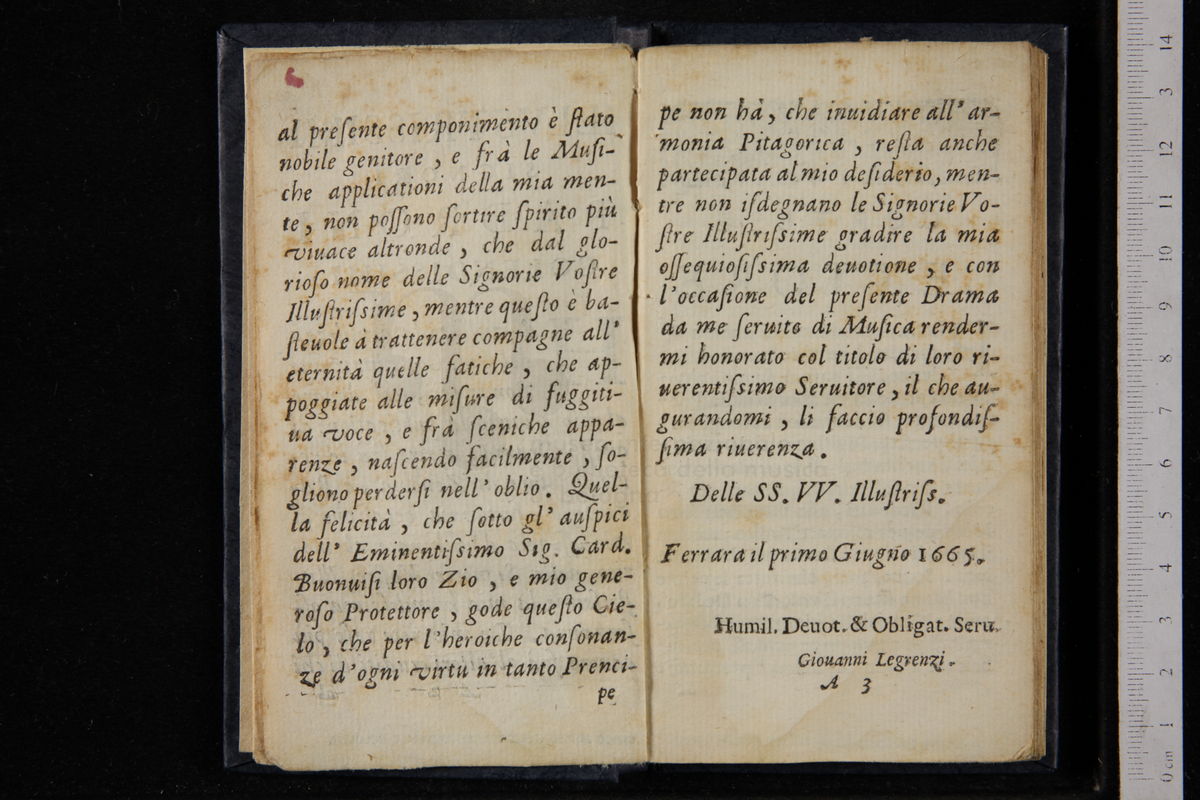 al preſente componimento è ſtato
nobile genitore, e frà le Muſi-
che applicationi della mia men-
te, non poſſono ſortire ſpirito più
viuace altronde, che dal glo-
rioſo nome delle Signorie Voſtre
Illuſtriſsime, mentre queſto è ba-
ſteuole à trattenere compagne all'
eternità quelle fatiche, che ap-
poggiate alle miſure di fuggiti-
ua voce, e frà ſceniche appa-
renze, naſcendo facilmente, ſo-
gliono perderſi nell' oblio. Quel-
la felicità, che ſotto gl' auſpici
dell' Eminentiſsimo Sig. Card.
Buonuiſi loro Zio, e mio gene-
roſo Protettore, gode queſto Cie-
lo, che per l'heroiche conſonan-
ze d'ogni virtù in tanto Prenci-
pe
pe non hà, che inuidiare all' ar-
monia Pitagorica, reſta anche
partecipata al mio deſiderio, men-
tre non iſdegnano le Signorie Vo-
ſtre Illuſtriſsime gradire la mia
oſſequioſiſsima deuotione, e con
l'occaſione del preſente Drama
da me ſeruito di Muſica render-
mi honorato col titolo di loro ri-
uerentiſsimo Seruitore, il che au-
gurandomi, li faccio profondiſ-
ſima riuerenza.
Delle SS. VV. Illuſtriſs.
Ferrara il primo Giugno 1665.
Humil. Deuot. & Obligat. Seru.
Giouanni Legrenzi.
A 3
0 cm 1 2 3 4 5 6 7 8 9 10 11 12 3 14